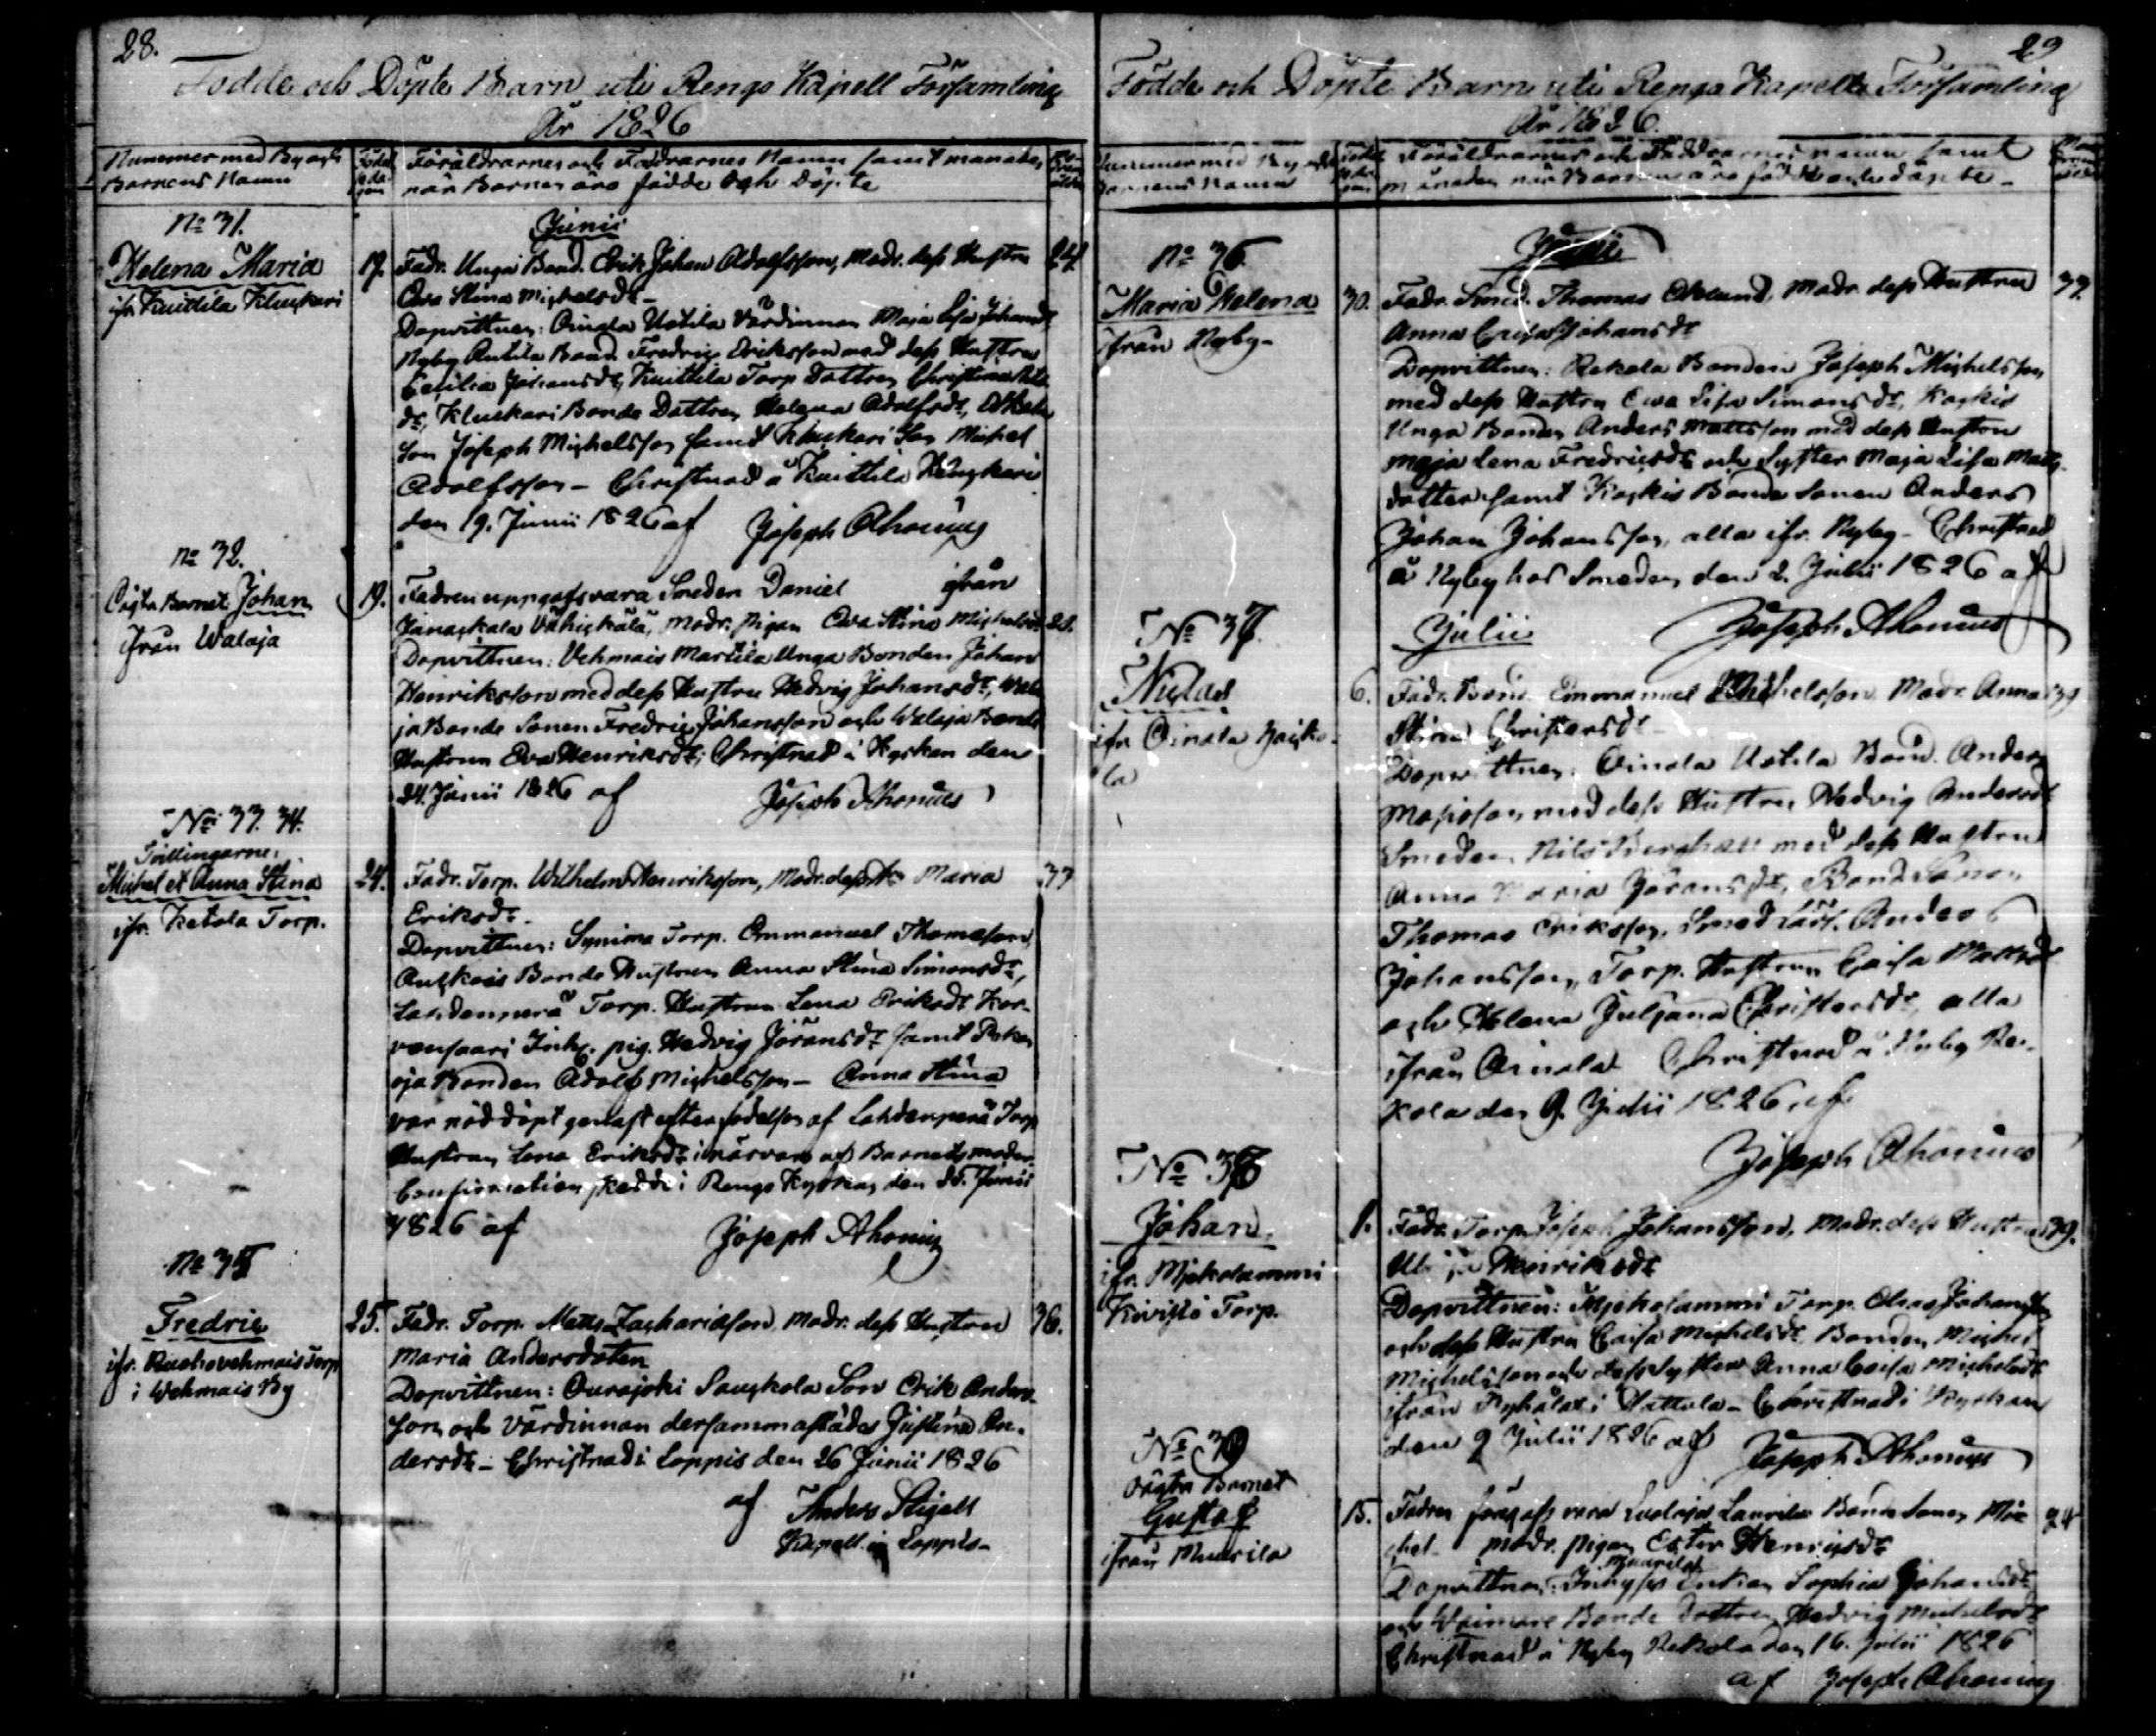 28.
Födde och Döpte Barn uti Rengo Kapell Församling
År 1826
Nummer med By och
Barnens Namn
Föräldrarnes och Faddrarnes Namn samt månaden
när Barnen äro födde och Döpte
No 31.
Helena Maria
ifr. Kuittila Kluckari
Junii
17. Fadr. Unga Bond. Erik Johan Adolfsson, Modr. dess Hustru 24.
Eva Stina Michelsdr
Dopvittnen: Oinala Uotila Värdinnan Maja Lisa Johansdr
Nyby Antila Bond. Fredric Eriksson med dess Hustru
Cecilia Johansdr, Kuittila Torp Dottren Christina
dr, Kluckari Bonde Dottren Helena Adolfsdr,
Son Joseph Michelsson samt Kluckari Son Michel
Adolfsson – Christnad å Kuittila Kluckari
den 19. Junii 1826 af Joseph Ahonius
No 32.
Oägta Barnet Johan
ifrån Walaja
19. Fadren uppgafs vara Smeden Daniel ifrån
Janackala Vähickälä, Modr. pigan Eva Stina Michelsdr 28.
Dopvittnen: Vehmais Martila Unga Bonden Johan
Henriksson med dess Hustru Hedvig Johansdr, Wala
ja Bonde Sonen Fredric Johansson och Walaja Bonde
Hustrun Eva Henriksdr; Christnad i Kyrkan den
24. Junii 1826 af Joseph Ahonius
No 33. 34.
Tvillingarne
Michel et Anna Stina
ifr. Ketola Torp.
24. Fadr. Torp. Wilhelm Henriksson, Modr. dess Hu Maria 33
Eriksdr.
Dopvittnen: Torp. Emmanuel Thomasson,
Bonde Hustrun Anna Stina Simonsdr,
Lahdenperä Torp. Hustrun Lena Eriksdr Kor-
vensaari Inh. pig. Hedvig Göransdr samt
oja Bonden Adolf Michelsson – Anna Stina
var nöddöpt genast efter födelsen af Lahdenperä Torp
Hustrun Lena Eriksdr i närvaro af Barnets moder
Confirmation skedde i Rengo Kyrkan den 25. Junii
1826 af Joseph Ahonius
No 35
Fredric
ifr. Ruohovehmais Torp
i Wehmais By
25. Fadr. Torp. Matts Zachariasson, Modr. dess Hustru 36.
Maria Andersdoter
Dopvittnen: Ourajoki Sauckola Son Erik Anders-
son och Värdinnan dersammastädes Justina An-
dersdr – Christnad i Loppis den 26 Junii 1826
af Anders Stigell
Kapell. i Loppis
29
Födde och Döpte Barn uti Rengo Kapell Församling
År 1826.
Nummer med By och
Barnens Namn
Föräldrarnes och Faddrarnes namn samt
månaden när Barnen äro födde och döpte
Junii
No 36.
Maria Helena
ifrån Nyby
30. Fadr. Smed. Thomas Eklund, Modr. dess Hustru 37.
Anna Caisa Johansdr
Dopvittnen: Rekola Bonden Joseph Michelsson
med dess Hustru Ewa Lisa Simonsdr, Koskis
Unga Bonden Anders Mattsson med dess Hustru
Maja Lena Fredricsdr och Syster Maja Lisa Matts-
dotter samt Koskis Bonde Sonen Anders
Johan Johansson, alla ifr. Nyby – Christnad
å Nyby hos Smeden den 2. Julii 1826 af
Joseph Ahonius
Julii
No 37.
Niclas
ifr. Oinala
la
6. Fadr. Bond. Emmanuel Michelsson Modr. Anna 39
Stina Christersdr
Dopvittnen: Oinala Uotila Bond. Anders
med dess Hustru Hedvig Andersdr
Smeden Nils Berghäll med dess Hustru
Anna Maria Göransdr, Bond Sonen
Thomas Eriksson, Smed Lärl. Anders
Johansson, Torp. Hustrun Caisa Mattsdr
och Helena Juliana Christersdr, alla
ifrån Oinala Christnad å Nyby Re-
kola den 9. Julii 1826 af
Joseph Ahonius
No 38
Johan
ifr. Mjekolammi
Kivistö Torp.
8. Fadr. Torp. Joseph Johansson, Modr. dess Hustru 39.
Henriksdr
Dopvittnen: Mjekolammi Torp. Johansson
och dess Hustru Caisa Michelsdr, Bonden Michel
Michelsson och dess Syster Anna Caisa Michelsdr
ifrån i Hattula – Christnad i Kyrkan
den 9 Julii 1826 af Joseph Ahonius
No 39
Oägta Barnet
Gustaf
ifrån Muurila
15. Fadren föregafs vara Laurila Bonde Sonen Mi- 24
chel Modr. pigan Ester Henricsdr
Muurila
Dopvittnen: Inhyses Enkan Sophia Johansdr
och Bonde Dottren Hedvig Michelsdr
Christnad å Nyby Rekola den 16. Julii 1826
af Joseph Ahonius